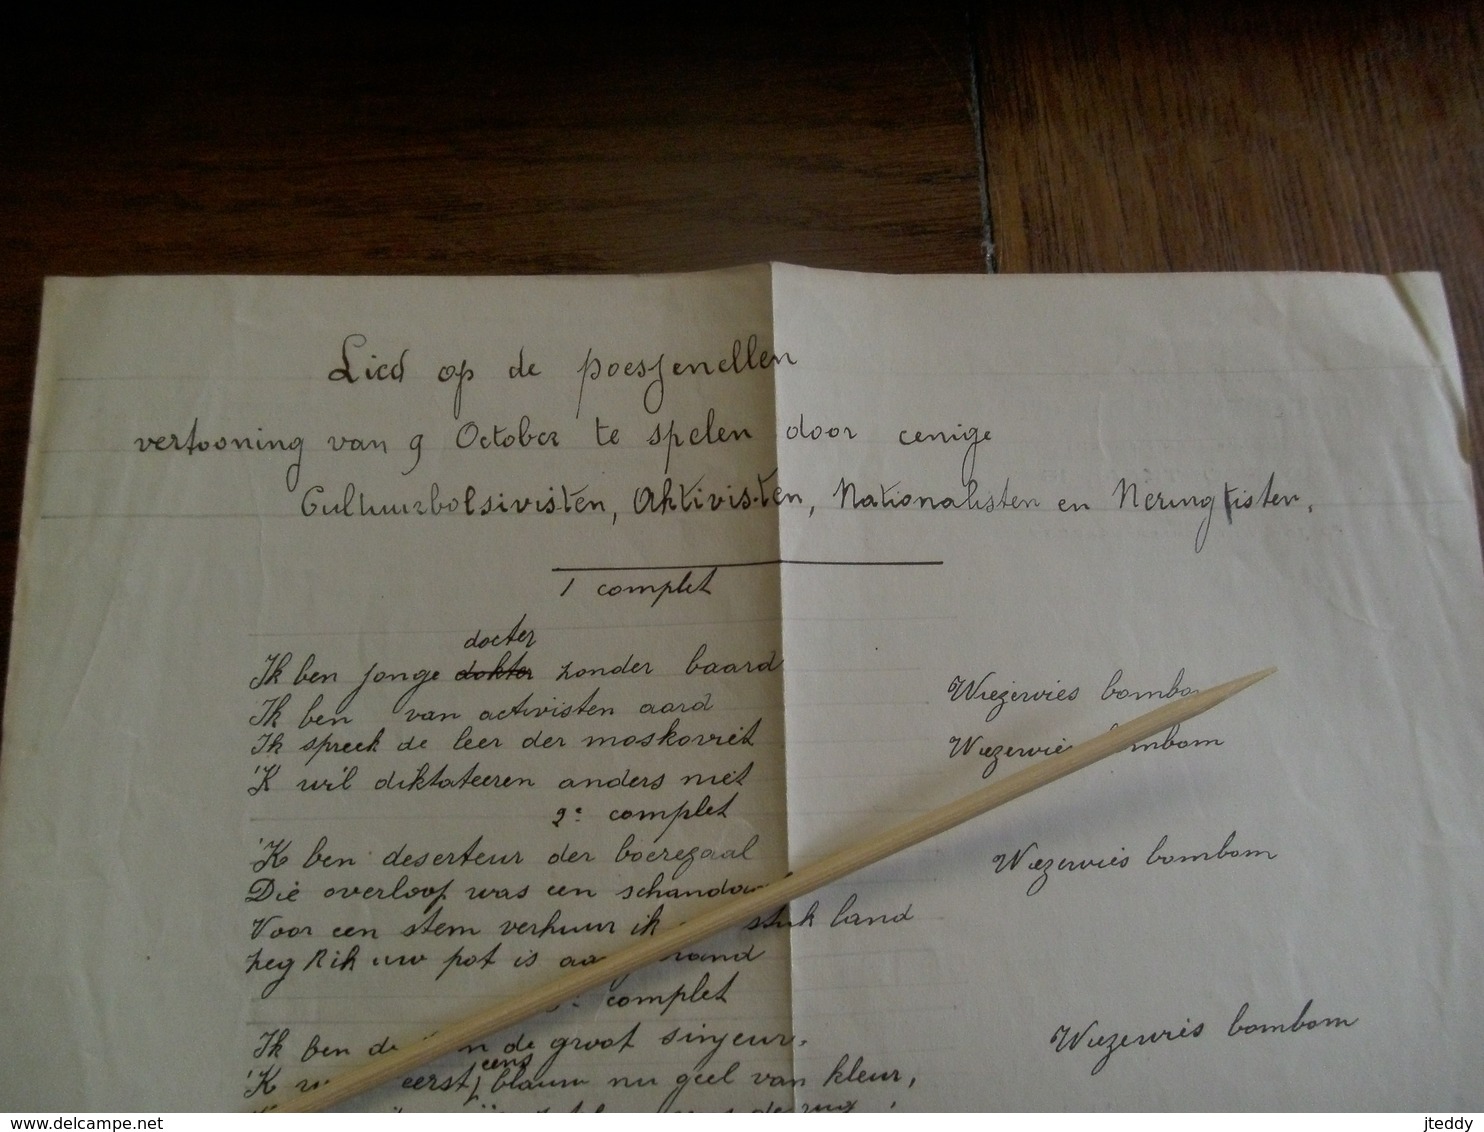 Lied op de poesjenellen
vertooning van 9 October te spelen door eenige
Cultuurbolsivisten, Aktivisten, Nationalisten en Neringtisten.
1 complet
docter
Ik ben jonge dokter zonder baard Wiezewies bombo
Ik ben van activisten aard
Ik spreek de leer der moskoviet Wiezewies bombom
'K wil diktateeren anders niet
2e complet
'K ben deserteur der boerezaal Wiezewies bombom
Die overloop was een schand
Voor een stem verhuur ik stuk land
zeg Rik uw pot is aa brand
complet
Ik ben de de groot sinjeur. Wiezewies bombom
eens
'K eerst blauw nu geel van kleur,
delcampe.net
jteddy